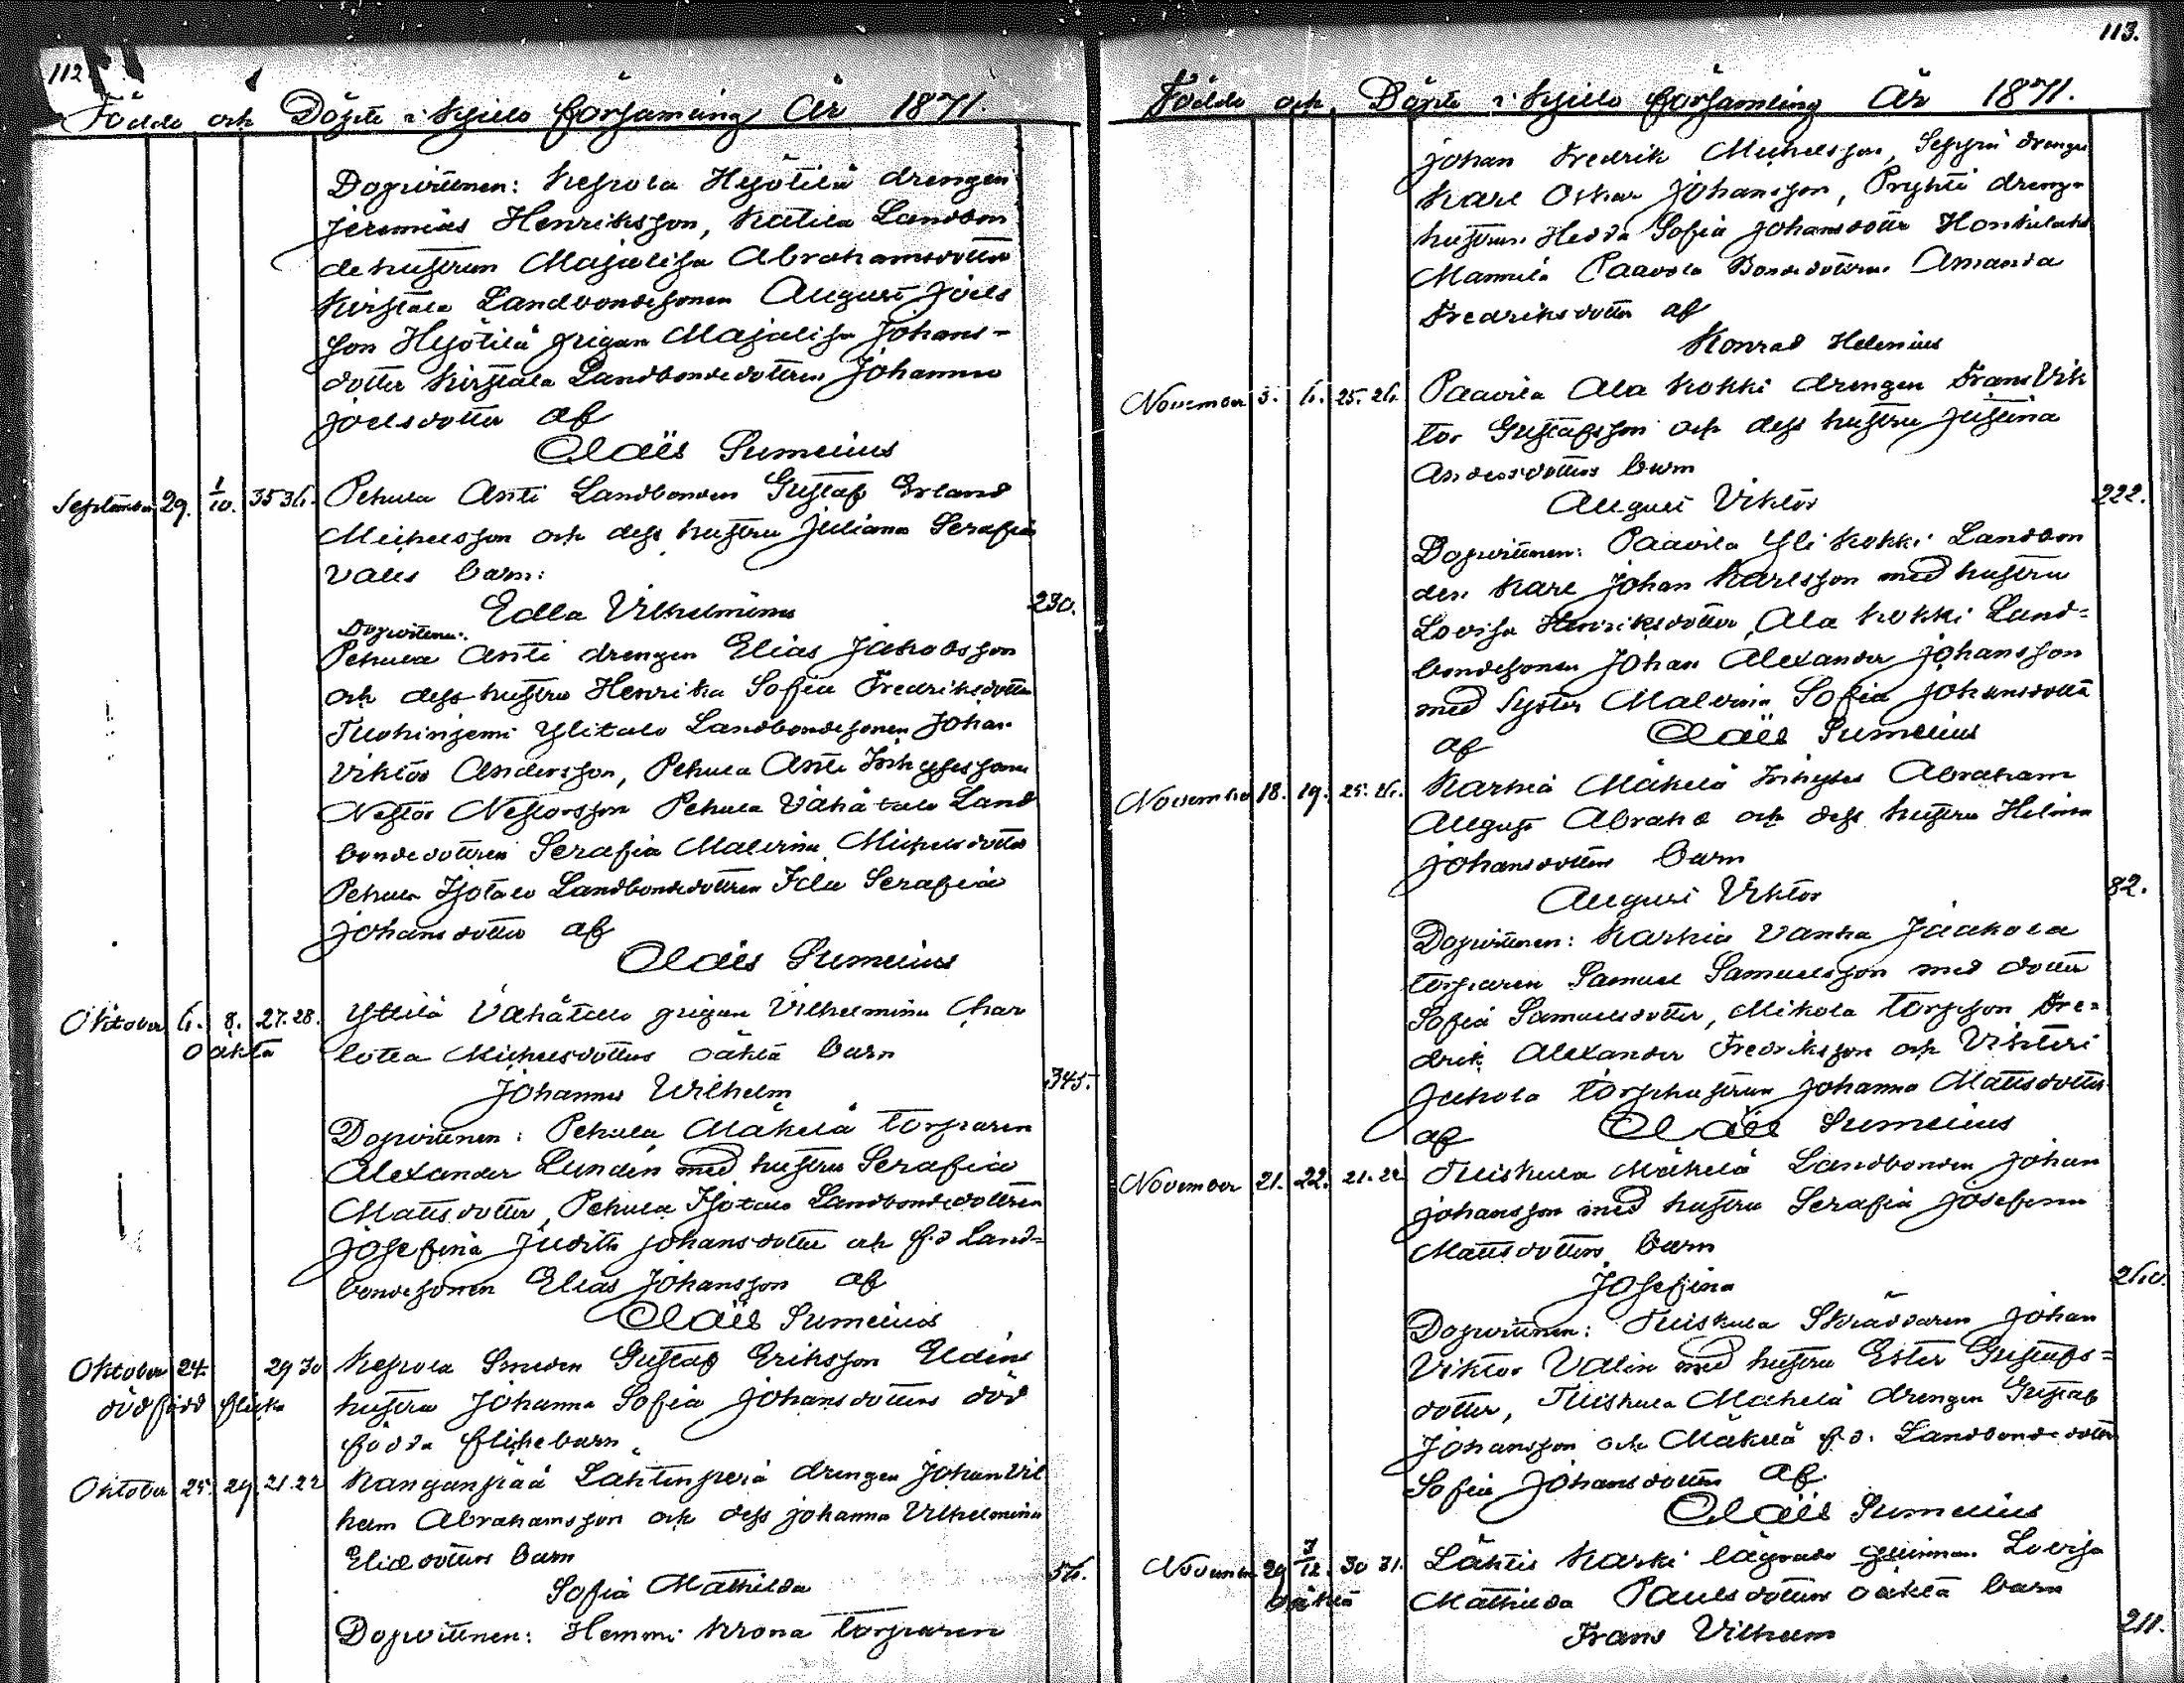 112.
Födde och Döpte i Kjulo församling År 1871.
Dopvittnen: Kepola Hyötilä drengen
Jeremias Henriksson, Katila Landbon
dehustrun Majalisa Abrahamsdotter
Kirstala Landbondesonen August Joels
son Hyötilä pigan Majalisa Johans-
dotter Kirstala Landbondedottren Johanna
Joelsdotter af
Claës Sumelius
September 29. 1/10. 35 36. Pehula Anti Landbonden Gustaf Erland
Michelsson och dess hustru Juliana Serafia
Valls barn:
Edla Vilhelmina 230.
Dopvittnen:
Pehula Anti drengen Elias Jakobsson
och dess hustru Henrika Sofia Fredriksdotter
Tuohiniemi Ylitalo Landbondesonen Johan
Viktor Andersson, Pehula Anti Inhysessonen
Nestor Nestorsson Pehula Vähätalo Land
bondedottren Serafia Malvina Michelsdotter
Pehula Isotalo Landbondedottren Ida Serafia
Johansdotter af
Claës Sumelius
Oktober 6. 8. 27. 28. Yttilä Vähätalo pigan Vilhelmina Char
oäkta lotta Michelsdotters oäkta barn
Johannes Wilhelm 345.
Dopvittnen: Pehula Mäkelä torparen
Alexander Lundén med hustru Serafia
Mattsdotter, Pehula Isotalo Landbondedottren
Josefina Judith Johansdotter och f.d Land=
bondesonen Elias Johansson af
Claës Sumelius
Oktober 24. 29 30 Kepola Smeden Gustaf Eriksson Eldéns
dödfödd flicka hustru Johanna Sofia Johansdotters död
födda flickebarn
Oktober 25. 29. 21. 22 Kanganpää Lähtenperä drengen Johan Vil
helm Abrahamsson och dess Johanna Vilhelmina
Eliedotters barn
Sofia Mathilda 56.
Dopvittnen: Hemmi Krona torparen
113.
Födde och Döpte i Kjulo församling År 1871.
Johan Fredrik Michelsson, Seppä drengen
Karl Oskar Johansson, drengs
hustrun Hedda Sofia Johansdotter Honkilaht
Mannila Paavola Bondedottren Amanda
Fredriksdotter af
Konrad Helenius
November 3. 6. 25. 26. Paavila Ala Kokki drengen Frans Vik
tor Gustafsson och dess hustru Justina
Andersdotters barn
August Viktor 222.
Dopvittnen: Paavila Yli Kokki Landbon
den Karl Johan Karlsson med hustru
Lovisa Henriksdotter, Ala Kokki Land=
bondesonen Johan Alexander Johansson
med Syster Malvina Sofia Johansdotter
af Claës Sumelius
November 18. 19. 25. 26. Karhia Mäkelä Inhyses Abraham
August Abrahs och dess hustru Helena
Johansdotters barn
August Viktor 82.
Dopvittnen: Karhia Vanha Jaakola
torparen Samuel Samuelsson med dotter
Sofia Samuelsdotter, Mikola torpson Fre=
drik Alexander Fredriksson och
torphustrun Johanna Mattsdotter
af Claës Sumelius
November 21. 22. 21. 22 Tuiskula Mäkelä Landbonden Johan
Johansson med hustru Serafia Josefina
Mattsdotters barn
Josefina 260.
Dopvittnen: Tuiskula Skräddaren Johan
Viktor Valin med hustru Ester Gustafs=
dotter, Tuiskula Mäkelä drengen Gustaf
Johansson och Mäkelä f.d. Landbondedotter
Sofia Johansdotter af.
Claës Sumelius
November 29 3/12. 30 31. Lähtis Karki lägrade qvinnan Lovisa
oäkta Mathilda Paulsdotters oäkta barn
Frans Vilhelm 211.